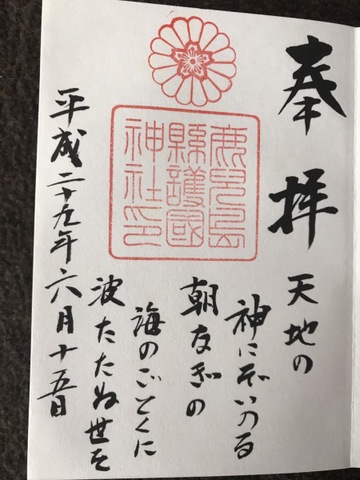 奉拝
天地の
神にぞいのる
朝なぎの
海のごとくに
波たたぬ世を
鹿児島
縣護國
神社印
平成二十九年六月十五日